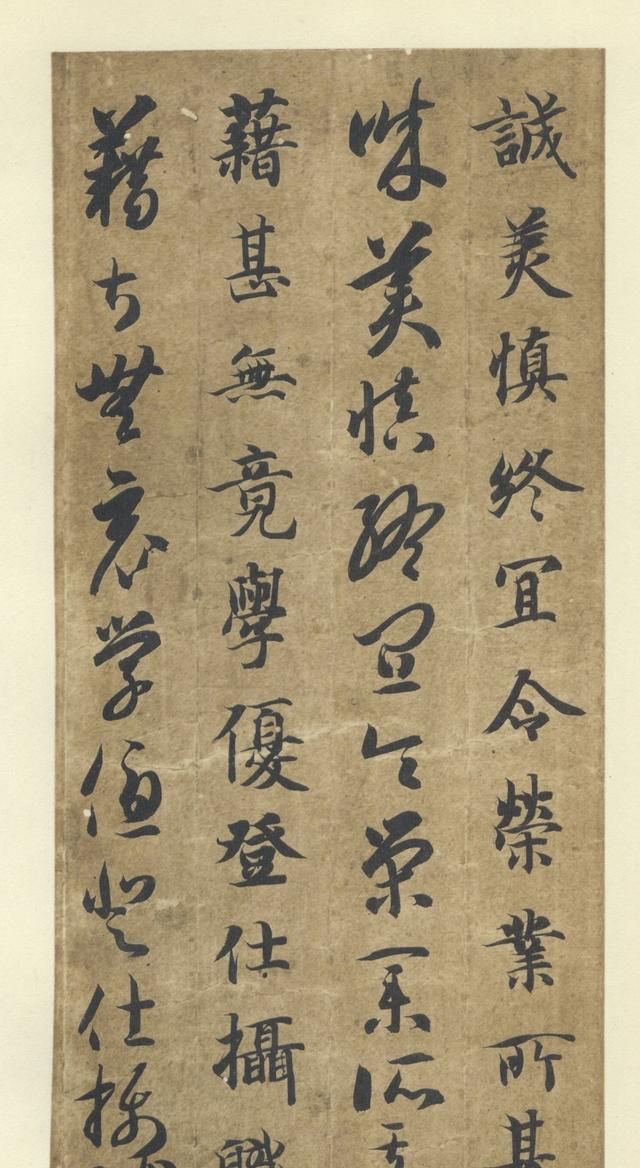 誠美慎終宜令榮業所基
誠美慎終宜令榮業所基
藉甚無竟學優登仕攝職
藉甚無竟學優登仕攝